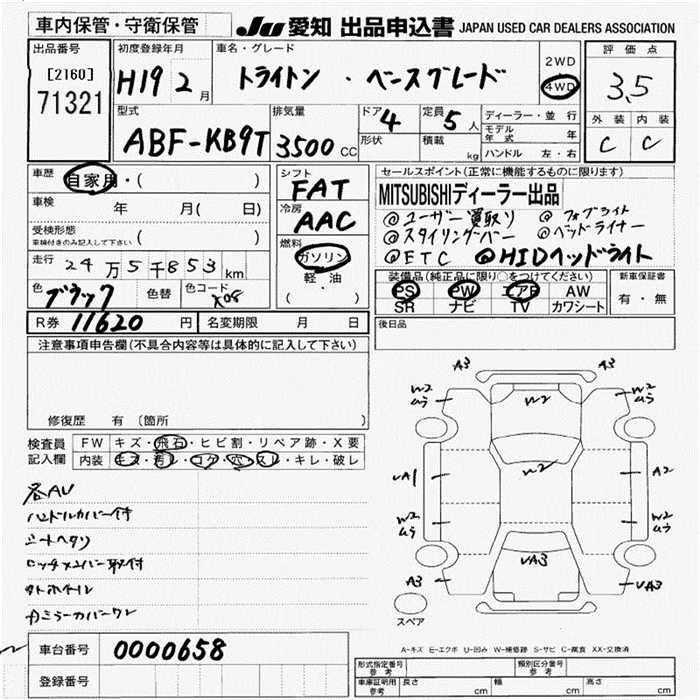 車内保管・守衛保管
JU 愛知 出品申込書 JAPAN USED CAR DEALERS ASSOCIATION
出品番号
[2160]
71321
初度登録年月
H19 2 月
車名・グレード
トライトン ・ ベースグレード
2WD
4WD
評価点
3.5
外装 内装
C C
型式
ABF-KB9T
排気量
3500 CC
ドア 4
形状
定員 5 人
積載 kg
ディーラー・並行
モデル年式 年
ハンドル 左・右
車歴 自家用・( )
車検 年 月( 日)
受検形態
車検付きのみ記入して下さい ( )
走行 24万5千853 km
色 ブラック 色替 色コード X08
R券 11620 円 名変期限 月 日
シフト
FAT
冷房
AAC
燃料
ガソリン
軽・油
( ・ )
セールスポイント(正常に機能するものに限ります)
MITSUBISHIディーラー出品
@ユーザー買取り @フォグライト
@スタイリングバー @ベッドライナー
@ETC @HIDヘッドライト
装備品(純正品に限り○をつけてください)
PS PW エアB AW
SR ナビ TV カワシート
新車保証書
有・無
後日品
注意事項申告欄(不具合内容等は具体的に記入して下さい)
修復歴 有 〔箇所 〕
検査員記入欄
FW キズ・飛石・ヒビ割・リペア跡・X要
内装 キズ・汚レ・コゲ・穴・スレ・キレ・破レ
各AU
ハンドルカバー付
シートヘタリ
ロックナンバー取付
タトホイール
A3 A3
W2 ムラ W2 W2 ムラ
UA1 W2 A2
W2 ムラ W2 ムラ
A3 UA3 UA3
スペア
A-キズ E-エクボ U-凹み W-補修跡 S-サビ C-腐食 XX-交換済
車台番号 0000658
登録番号
形式指定番号 参考
類別区分番号 参考
車庫証明用 参考 長さ cm 幅 cm 高さ cm